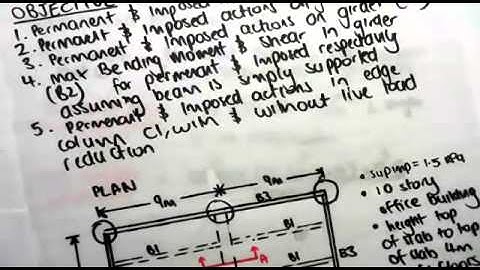 OBJECTIVE
1. Permanent & Imposed actions any
2. Permanent & Imposed actions on girder
3. Permanent & Imposed actions on girder
4. max Bending moment & shear in girder
(B2) for permanent & Imposed respectively
assuming beam is simply supported
5. Permenant & Imposed actions in edge
column C1, with & without live load
reduction
PLAN
9m
9m
B3
B1
B1
A
B3
• supimp = 1.5 kPa
• 10 story
office building
• height top
of slab to top
of slab 4m